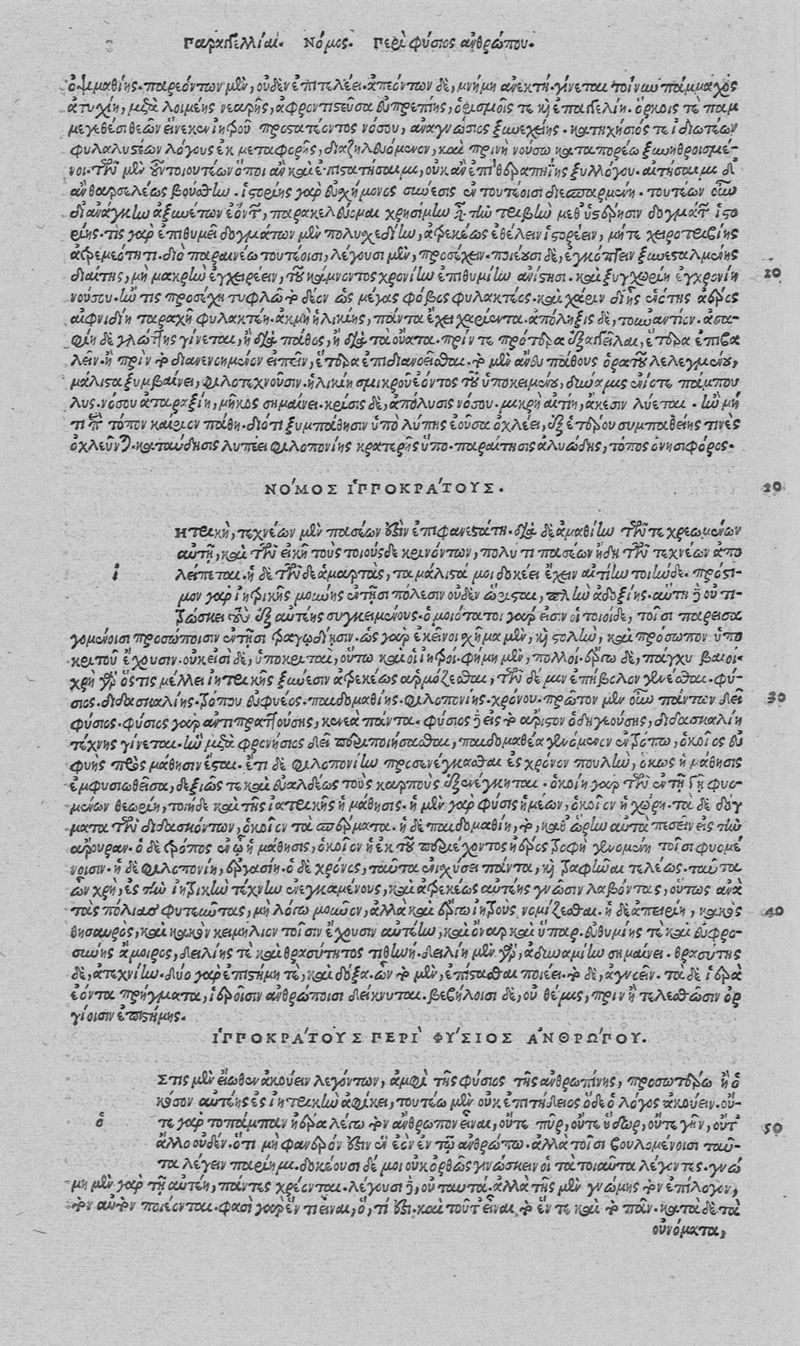 Παραγγελίαι. Νόμος. Περὶ φύσιος ἀνθρώπου.
ὀψιμαθίης. παρεόντων μὲν, οὐδὲν ἐπιτελέει. ἀπεόντων δὲ, μνήμη ἀνεκτή. γίνεται τοίνυν πάμμαχος
ἀτυχίη, μετὰ λύμης νεαρῆς, ἀφροντιστεῦσα εὐπρεπίης, ὁρισμοῖς τε καὶ ἐπαγγελίῃ. ὅρκοις τε παμ
μεγέθεσι θεῶν εἵνεκεν ἰητροῦ προστατέοντος νόσου, ἀναγνώσιος ξυνεχείης. κατηχήσιός τε ἰδιωτέων
φιλαλυστέων λόγους ἐκ μεταφορῆς, διαζηλευόμενον, καὶ πρινὴ νούσῳ καταπορέω ξυνηθροισμέ-
νοι. τῶν μὲν οὖν τοιουτέων ὅποι ἂν καὶ ἐπιστατήσαιμι, οὐκ ἂν ἐπὶ θεραπηΐης ξυλλόγου. αἰτήσαιμι δὲ
ἂν θαρσελέως βοηθεῖν. ἱστορίης γὰρ εὐσχήμονος σύνεσις ἐν τουτέοισι διεσπαρμένη. τουτέων οὖν
δι ἀνάγκην ἀξυνέτων ἐόντων, παρακελεύομαι χρησίμην εἶναι τὴν τριβὴν μεθ ὑστέρησιν δογμάτων ἱστο
ρίης. τίς γὰρ ἐπιθυμεῖ δογμάτων μὲν πολυσχεδίην, ἀτρεκέως ἐθέλειν ἱστορέειν, μήτε χειροτριβίης
ἀτρεμεότητι. διὸ παραινέω τουτέοισι, λέγουσι μὲν, προσέχειν. ποιέουσι δὲ, ἐγκόπτειν ξυνεσταλμένης
διαίτης, μὴ μακρὴν ἐγχειρέειν, τοῦ κάμνοντος χρονίην ἐπιθυμίην ἀνίστησι. καὶ ξυγχωρίη ἐγχρονίη 10
νούσου. ἤν τις προσέχῃ τυφλῷ τὸ δέον ὡς μέγας φόβος φυλακτέος. καὶ χάριν
αἰφνιδίη ταραχὴ φυλακτέη. ἀκμὴ ἡλικίης, πάντα ἔχει χαρίεντα. ἀπόληξις δὲ, τοὐναντίον. ἀσα-
φίη δὲ γλώττης γίνεται, ἢ διὰ πάθος, ἢ διὰ τὰ οὔατα. πρίν τε πρότερα ἐξαγγεῖλαι, ἕτερα ἐπιβα
λεῖν. ἢ πρὶν τὸ διανενοημένον εἰπεῖν, ἕτερα ἐπιδιανοεῖσθαι. τὸ μὲν ἄνευ πάθους ὁρατοῦ λελεγμένου,
μάλιστα ξυμβαίνει, φιλοτεχνοῦσιν. ἡλικίη σμικροῦ ἐόντος τοῦ ὑποκειμένου, δύναμις ἐνίοτε πάμπου
λυς. νόσου ἀταραξίη, μῆκος σημαίνει. κρίσις δὲ, ἀπόλυσις νόσου. μικρὴ αἰτίη, ἀκέσιν λύεται. ἢν μή
τι περὶ τόπον καίριον πάθῃ. διότι ξυμπάθησιν ὑπὸ λύπης ἐοῦσα ὀχλέει, ἐξ ἑτέρου συμπαθείης τινὲς
ὀχλεῦνται. καταύδησις λυπέει φιλοπονίης κρατερῆς ὕπο. παραίτησις ἀλυώδης, τόπος ὀνησιφόρος.
ΝΌΜΟΣ ἹΠΠΟΚΡΆΤΟΥΣ. 20
ΙΗτρικὴ, τεχνέων μὲν πασέων ἐστὶν ἐπιφανεστάτη. διὰ δὲ ἀμαθίην τῶν τε χρεωμένων
αὐτῇ, καὶ τῶν εἰκῆ τοὺς τοιούσδε κρινόντων, πολύ τι πασέων ἤδη τῶν τεχνέων ἀπο
ἰ λείπεται. ἡ δὲ τῶνδε ἁμαρτὰς, τὰ μάλιστά μοι δοκέει ἔχειν αἰτίην τοιήνδε. πρόστι-
μον γὰρ ἰητρικῆς μούνης ἐν τῇσι πόλεσιν οὐδὲν ὥρισται, πλὴν ἀδοξίης. αὕτη δὲ οὐ τι-
τρώσκει τοὺς ἐξ αὐτέης συγκειμένους. ὁμοιότατοι γάρ εἰσιν οἱ τοιοίδε, τοῖσι παρεισα
γομένοισι προσώποισιν ἐν τῇσι τραγῳδίῃσιν. ὡς γὰρ ἐκεῖνοι σχῆμα μὲν, καὶ στολὴν, καὶ πρόσωπον ὑπο
κριτοῦ ἔχουσιν. οὐκ εἰσὶ δὲ, ὑποκριταί, οὕτω καὶ οἱ ἰητροὶ. φήμῃ μὲν, πολλοὶ. ἔργῳ δὲ, πάγχυ βαιοί.
χρὴ γὰρ ὅστις μέλλει ἰητρικῆς ξύνεσιν ἀτρεκέως ἁρμόζεσθαι, τῶνδέ μιν ἐπήβολον γενέσθαι. φύ-
σιος. διδασκαλίης. τόπου εὐφυέος. παιδομαθίης. φιλοπονίης. χρόνου. πρῶτον μὲν οὖν πάντων δεῖ 30
φύσιος. φύσιος γὰρ ἀντιπραττούσης, κενεὰ πάντα. φύσιος δὲ εἰς τὸ ἄριστον ὁδηγεούσης, διδασκαλίη
τέχνης γίνεται. ἣν μετὰ φρονήσιος δεῖ περιποιήσασθαι, παιδομαθέα γενόμενον ἐν τόπῳ, ὁκοῖος εὐ
φυὴς πρὸς μάθησιν ἔσται. ἔτι δὲ φιλοπονίην προσενέγκασθαι ἐς χρόνον πουλὺν, ὅκως ἡ μάθησις
ἐμφυσιωθεῖσα, δεξιῶς τε καὶ εὐαλδέως τοὺς καρποὺς ἐξενέγκηται. ὁκοίη γὰρ τῶν ἐν τῇ γῇ φυο-
μένων θεωρίη, τοιήδε καὶ τῆς ἰατρικῆς ἡ μάθησις. ἡ μὲν γὰρ φύσις ἡμέων, ὁκοῖον ἡ χώρη. τὰ δὲ δόγ
ματα τῶν διδασκόντων, ὁκοῖον τὰ σπέρματα. ἡ δὲ παιδομαθίη, τὸ, καθ ὥρην αὐτὰ πεσεῖν εἰς τὴν
ἄρουραν. ὁ δὲ τρόπος ἐν ᾧ ἡ μάθησις, ὁκοῖον ἡ ἐκ τοῦ περιέχοντος ἠέρος τροφὴ γενομένη τοῖσι φυομέ
νοισιν. ἡ δὲ φιλοπονίη, ἐργασίη. ὁ δὲ χρόνος, ταῦτα ἐνισχύσει πάντα, καὶ τραφῆναι τελέως. ταῦτα
ὧν χρὴ, ἐς τὴν ἰητρικὴν τέχνην ἐνεγκαμένους, καὶ ἀτρεκέως αὐτέης γνῶσιν λαβόντας, οὕτως ἀνὰ
τὰς πόλιας φοιτεῦντας, μὴ λόγῳ μοῦνον, ἀλλὰ καὶ ἔργῳ ἰητροὺς νομίζεσθαι. ἡ δὲ ἀπειρίη, κακὸς 40
θησαυρὸς, καὶ κακὸν κειμήλιον τοῖσιν ἔχουσιν αὐτέην, καὶ ὄναρ καὶ ὕπαρ. εὐθυμίης τε καὶ εὐφρο-
σύνης ἄμοιρος, δειλίης τε καὶ θρασύτητος τιθήνη. δειλίη μὲν γὰρ, ἀδυναμίην σημαίνει. θρασύτης
δὲ, ἀτεχνίην. δύο γὰρ ἐπιστήμη τὲ, καὶ δόξα. ὧν τὸ μὲν, ἐπίστασθαι ποιέει. τὸ δὲ, ἀγνοεῖν. τὰ δὲ ἱερὰ
ἐόντα πρήγματα, ἱεροῖσιν ἀνθρώποισι δείκνυται. βεβήλοισι δὲ, οὐ θέμις, πρὶν ἢ τελεσθῶσιν ὀρ
γίοισιν ἐπιστήμης.
ἹΠΠΟΚΡΆΤΟΥΣ ΠΕΡῚ ΦΎΣΙΟΣ ἈΝΘΡΏΠΟΥ.
Στις μὲν εἴωθεν ἀκούειν λεγόντων, ἀμφὶ τῆς φύσιος τῆς ἀνθρωπίνης, προσωτέρω ἢ ὁ
κόσον αὐτέης ἐς ἰητρικὴν ἀφίκει, τουτέῳ μὲν οὐκ ἐπιτήδειος ὅδε ὁ λόγος ἀκούειν. οὔ-
ὁ τε γὰρ τοπάμπαν ἠέρα λέγω τὸν ἄνθρωπον εἶναι, οὔτε πῦρ, οὔτε ὕδωρ, οὔτε γῆν, οὔτ 50
ἄλλο οὐδὲν. ὅτι μὴ φανερόν ἐστιν ἓν ἐὸν ἐν τῷ ἀνθρώπῳ. ἀλλὰ τοῖσι βουλομένοισι ταῦ-
τα λέγειν παρίημι. δοκέουσι δέ μοι οὐκ ὀρθῶς γινώσκειν οἱ τὰ τοιαῦτα λέγοντες. γνώ
μῃ μὲν γὰρ τῇ αὐτέῃ, πάντες χρέονται. λέγουσι δὲ, οὐ ταυτά. ἀλλὰ τῆς μὲν γνώμης τὸν ἐπίλογον,
τὸν αὐτὸν ποιέονται. φασὶ γὰρ ἕν τι εἶναι, ὅ, τι ἐστὶ. καὶ τοῦτ εἶναι τὸ ἕν τε καὶ τὸ πᾶν. κατὰ δὲ τὰ
οὐνόματα,